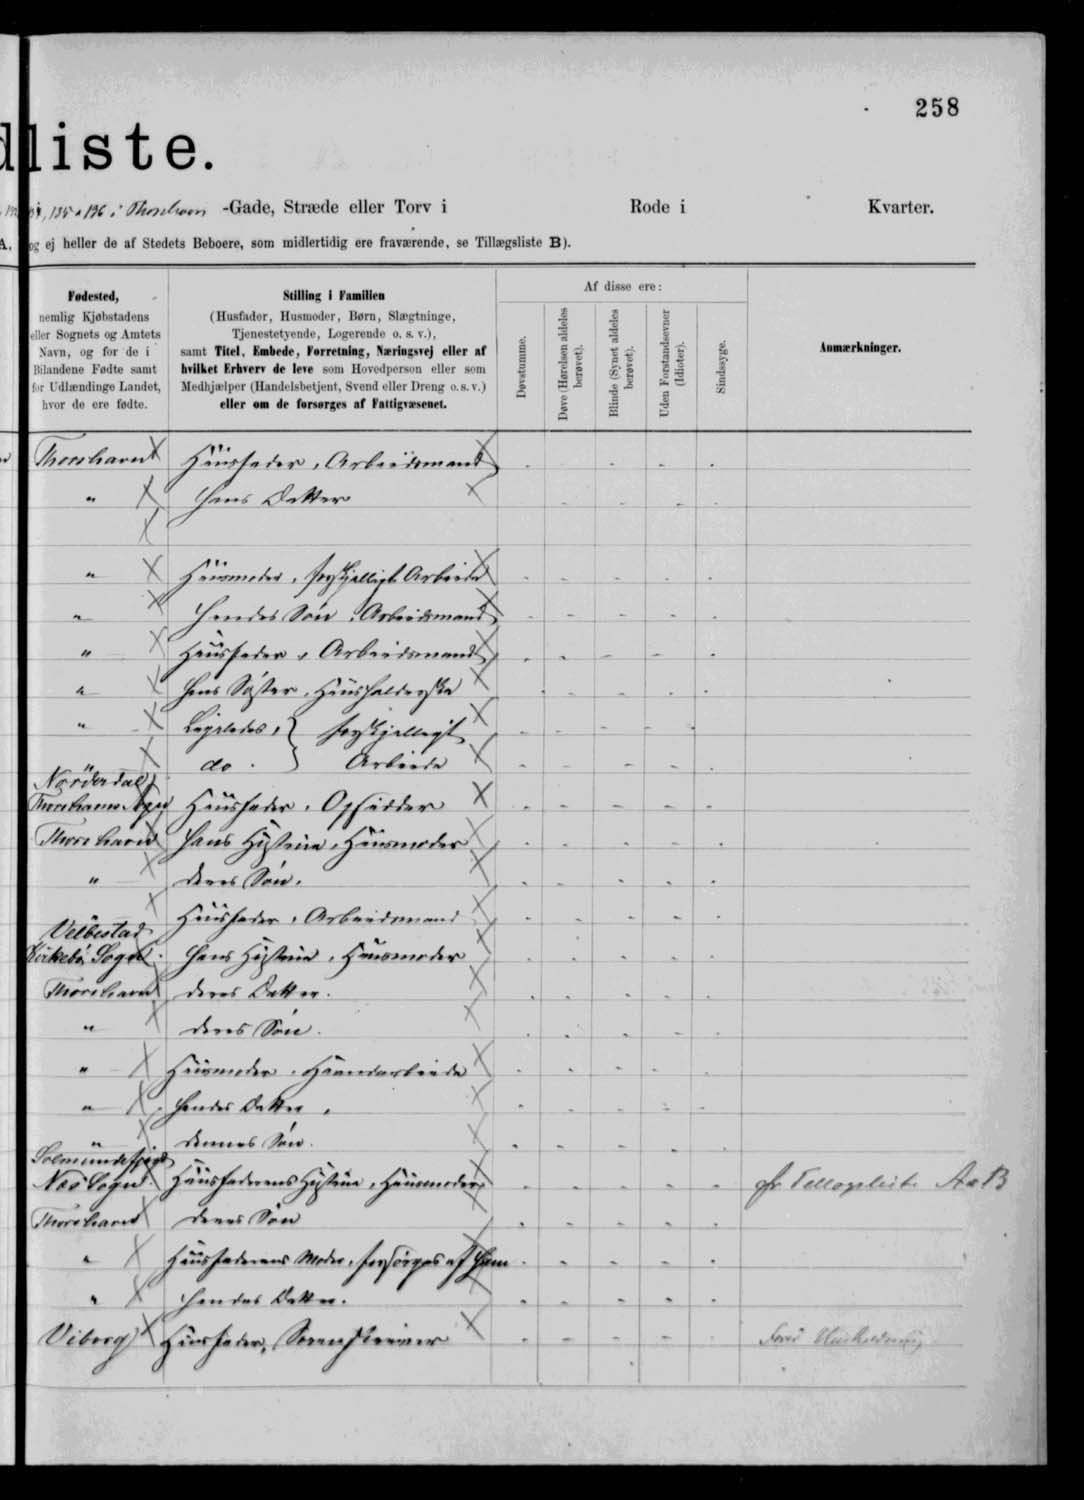 258
dliste.
134, 135 & 136 i Thorshavn -Gade, Stræde eller Torv i Rode i Kvarter.
A, og ej heller de af Stedets Beboere, som midlertidig ere fraværende, se Tillægsliste B).
Fødested,
nemlig Kjøbstadens
eller Sognets og Amtets
Navn, og for de i
Bilandene Fødte samt
for Udlændinge Landet,
hvor de ere fødte.
Stilling i Familien
(Husfader, Husmoder, Børn, Slægtninge,
Tjenestetyende, Logerende o. s. v.),
samt Titel, Embede, Forretning, Næringsvej eller af
hvilket Erhverv de leve som Hovedperson eller som
Medhjælper (Handelsbetjent, Svend eller Dreng o. s. v.)
eller om de forsørges af Fattigvæsenet.
Af disse ere:
Døvstumme.
Døve (Hørelsen aldeles
berøvet).
Blinde (Synet aldeles
berøvet).
Uden Forstandsevner
(Idioter).
Sindssyge.
Anmærkninger.
Thorshavn Huusfader, Arbeidsmand
" Hans Datter
" Huusmoder, forskjelligt Arbeide
" Hendes Søn, Arbeidsmand
" Huusfader, Arbeidsmand
" Hans Søster, Huusholderske
" Ligeledes, } forskjelligt
" do. } Arbeide
Nørdradal
Thorshavns Sogn Huusfader, Opsidder
Thorshavn Hans Hustrue, Huusmoder
" Deres Søn.
Huusfader, Arbeidsmand
Velbestad
Kirkebø Sogn. Hans Hustrue, Huusmoder
Thorshavn Deres Datter.
" Deres Søn.
" Huusmoder, Haandarbeide
" Hendes Datter,
" Dennes Søn.
Solmundefjord
Næs Sogn. Huusfaderens Hustrue, Huusmoder, cfr Tillægsliste A & B
Thorshavn Deres Søn
" Huusfaderens Moder, forsørges af ham
" Hendes Datter.
Viborg Huusfader, Sorenskriver